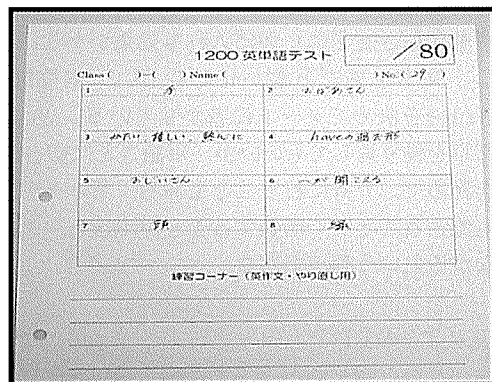 1200 英単語テスト
／80
Class ( )-( ) Name ( ) No. ( 29 )
1 手
2 おばあさん
3 かたい, 難しい, 熱心に
4 haveの過去形
5 おじいさん
6 〜が聞こえる
7 頭
8
練習コーナー（英作文・やり直し用）